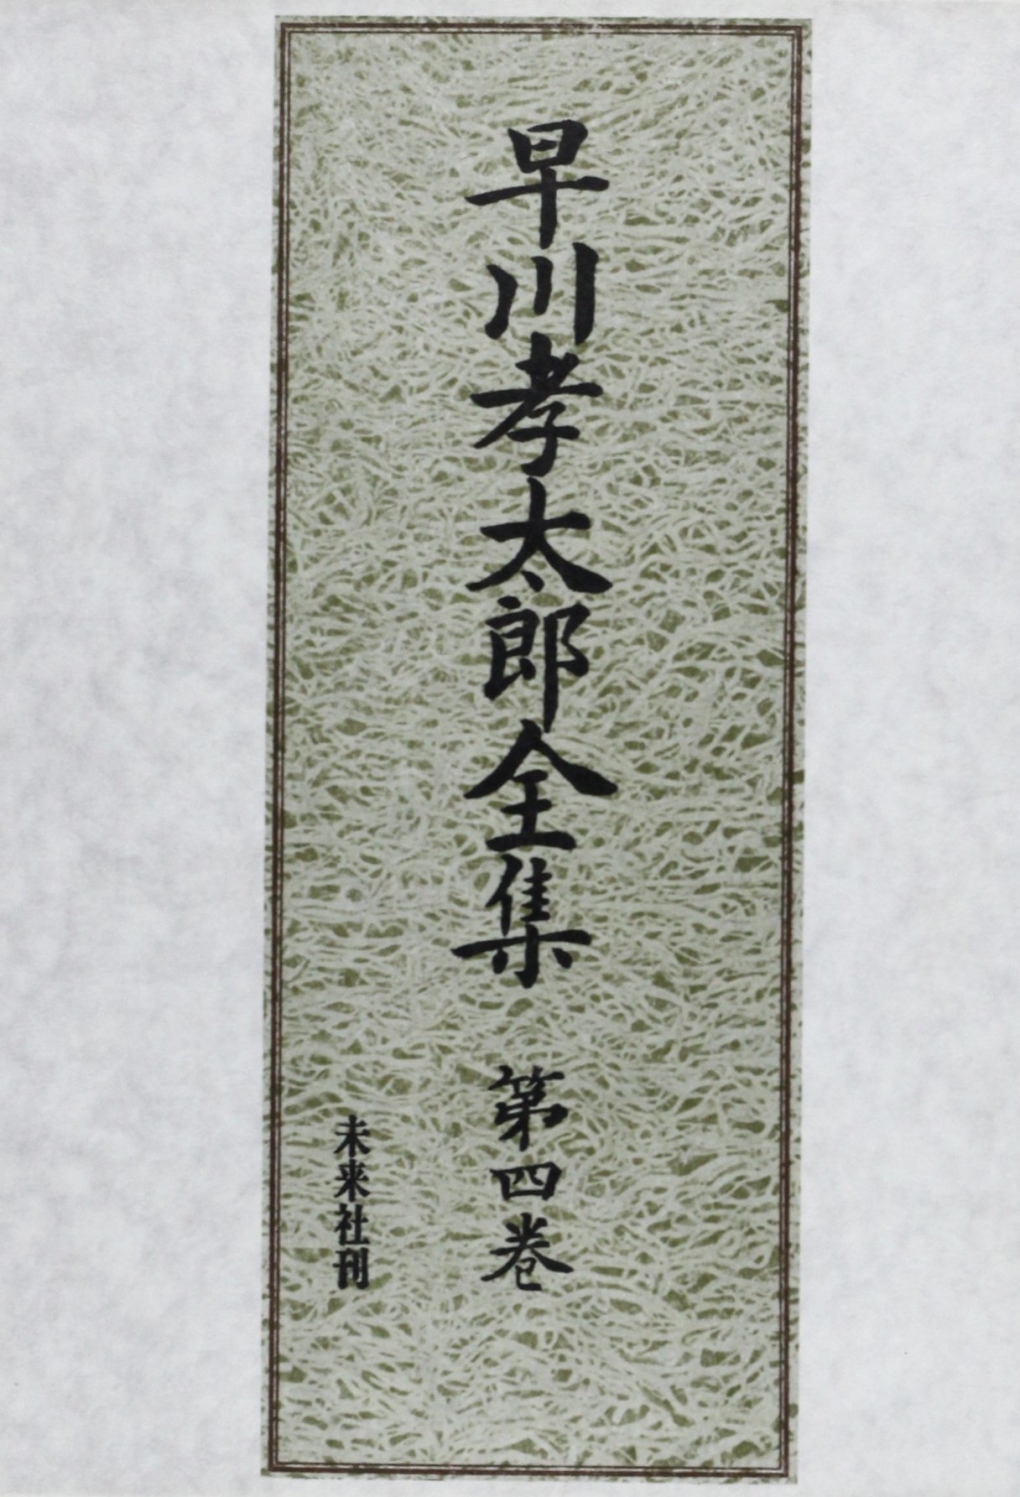 早川孝太郎全集 第四巻
未来社刊